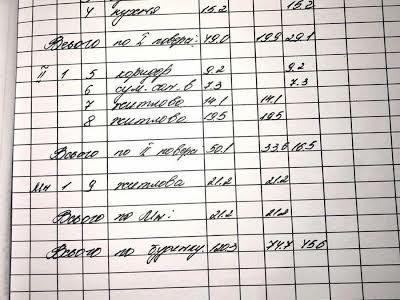 4 кухня 15.2 15.2
Всього по I поверх: 49.0 19.9 29.1
II 1 5 коридор 9.2 9.2
6 сум. сан. в 7.3 7.3
7 житлова 14.1 14.1
8 житлова 19.5 19.5
Всього по II поверх 50.1 33.6 16.5
Мн 1 9 житлова 21.2 21.2
Всього по Мн: 21.2 21.2
Всього по будинку 120.3 74.7 45.6